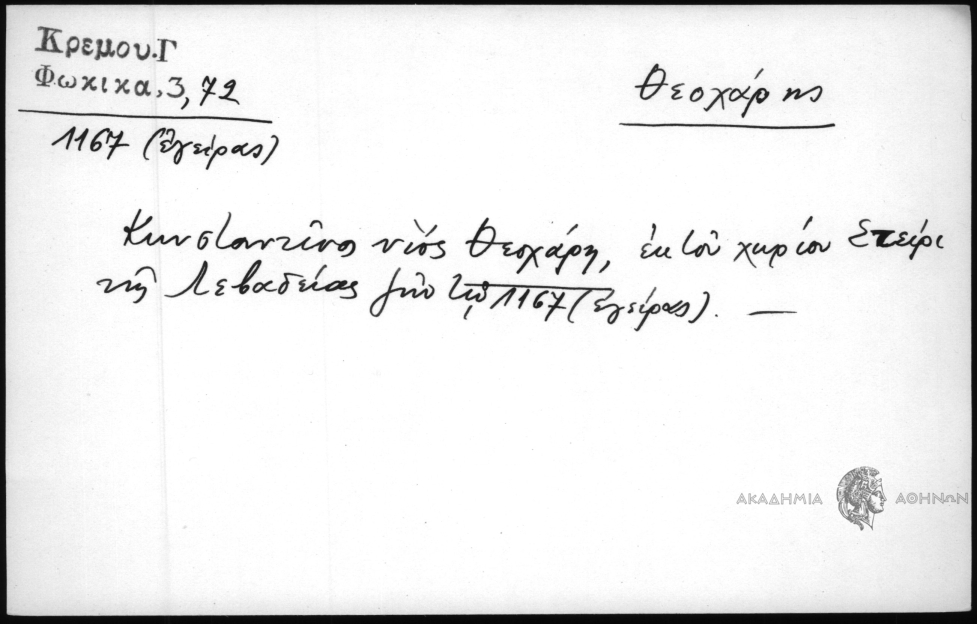 Κρεμου.Γ
Φωκικα,3,72
1167 (ἐγείρας)
Θεοχάρης
Κωνσταντῖνος υἱός Θεοχάρη, ἐκ τοῦ χωρίου Στείρι
τῆς Λεβαδείας 1167 (ἐγείρας). —
ΑΚΑΔΗΜΙΑ ΑΘΗΝΩΝ